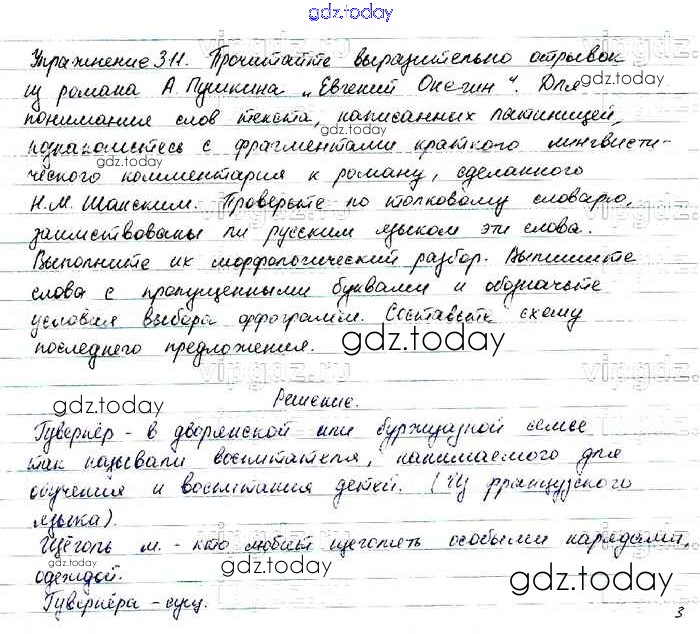 gdz.today
Упражнение 311. Прочитайте выразительно отрывок
из романа А. Пушкина „Евгений Онегин“. Для
понимания слов текста, написанных латиницей,
gdz.today
познакомтесь с фрагментами краткого лингвисти-
ческого комментария к роману, сделанного
Н.М. Шанским. Проверьте по толковому словарю,
заимствованы ли русским языком эти слова.
Выполните их морфологический разбор. Выпишите
слова с пропущенными буквами и обозначьте
условия выбора орфограмм. Составьте схему
последнего предложения.
gdz.today
vipgdz.ru
Решение.
gdz.today
Гувернёр - в дворянской или буржуазной семье
так называли воспитателя, нанимаемого для
обучения и воспитания детей. (из французского
языка).
Щёголь м. - кто любит щеголять особыми нарядами,
одеждой.
gdz.today
gdz.today
Гувернёра - сущ.
3